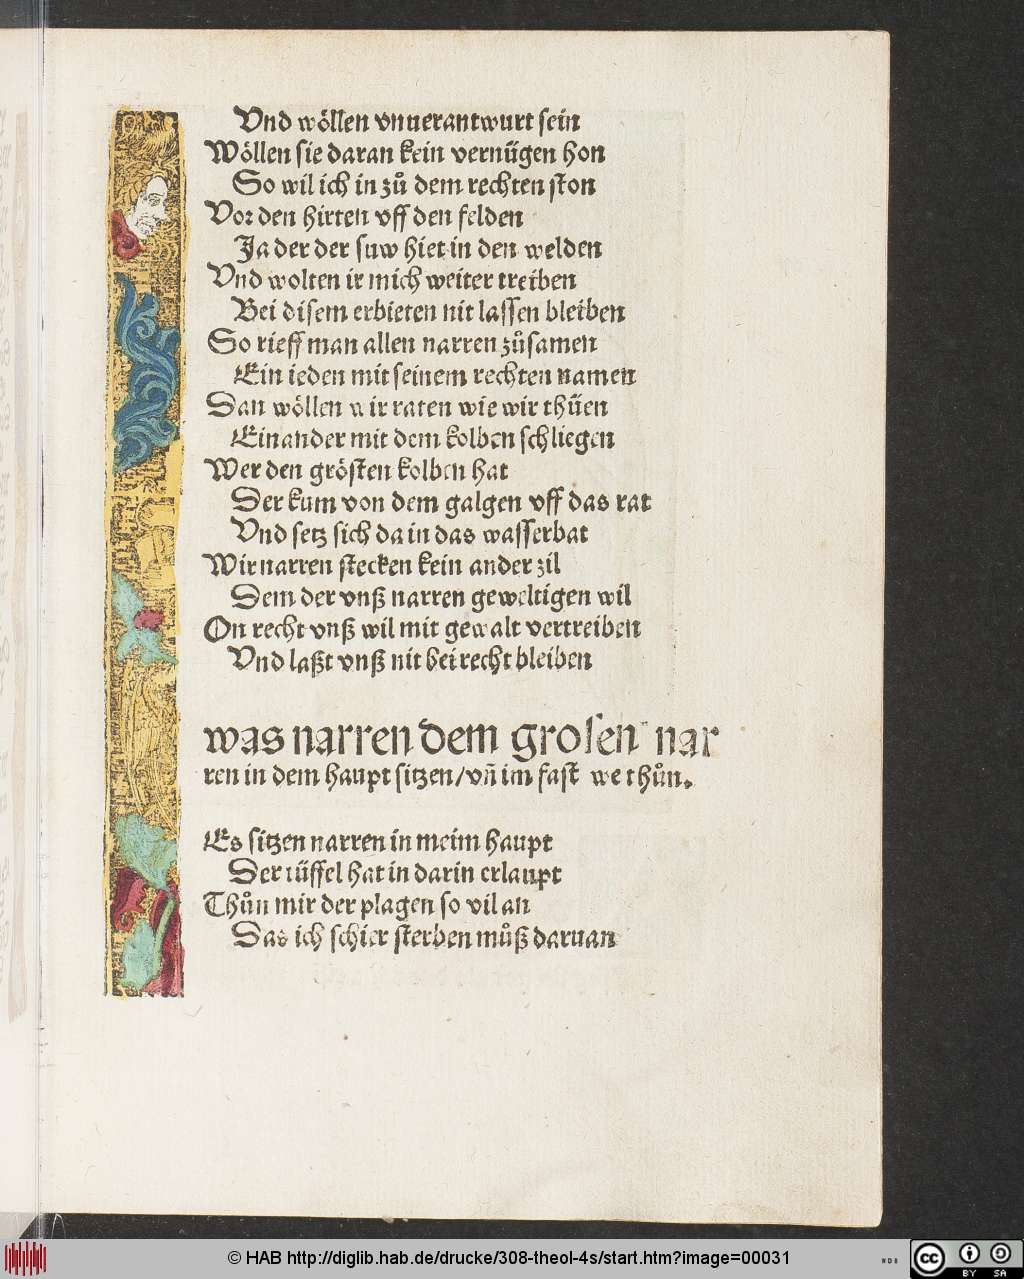 Vnd wöllen vnuerantwurt sein
Wöllen sie daran kein vernügen hon
So wil ich in zů dem rechten ston
Vor den hirten vff den felden
Ja der der suw hiet in den welden
Vnd wolten ir mich weiter treiben
Bei disem erbieten nit lassen bleiben
So rieff man allen narren zůsamen
Ein ieden mit seinem rechten namen
Dan wöllen wir raten wie wir thüen
Einander mit dem kolben schliegen
Wer den grösten kolben hat
Der kum von dem galgen vff das rat
Vnd setz sich da in das wasserbat
Wir narren stecken kein ander zil
Dem der vnß narren geweltigen wil
On recht vnß wil mit gewalt vertreiben
Vnd laßt vnß nit bei recht bleiben
was narren dem grosen nar
ren in dem haupt sitzen/vñ im fast we thůn.
Es sitzen narren in meim haupt
Der tüffel hat in darin erlaupt
Thůn mir der plagen so vil an
Das ich schier sterben můß daruan
© HAB http://diglib.hab.de/drucke/308-theol-4s/start.htm?image=00031
WDB
cc BY SA